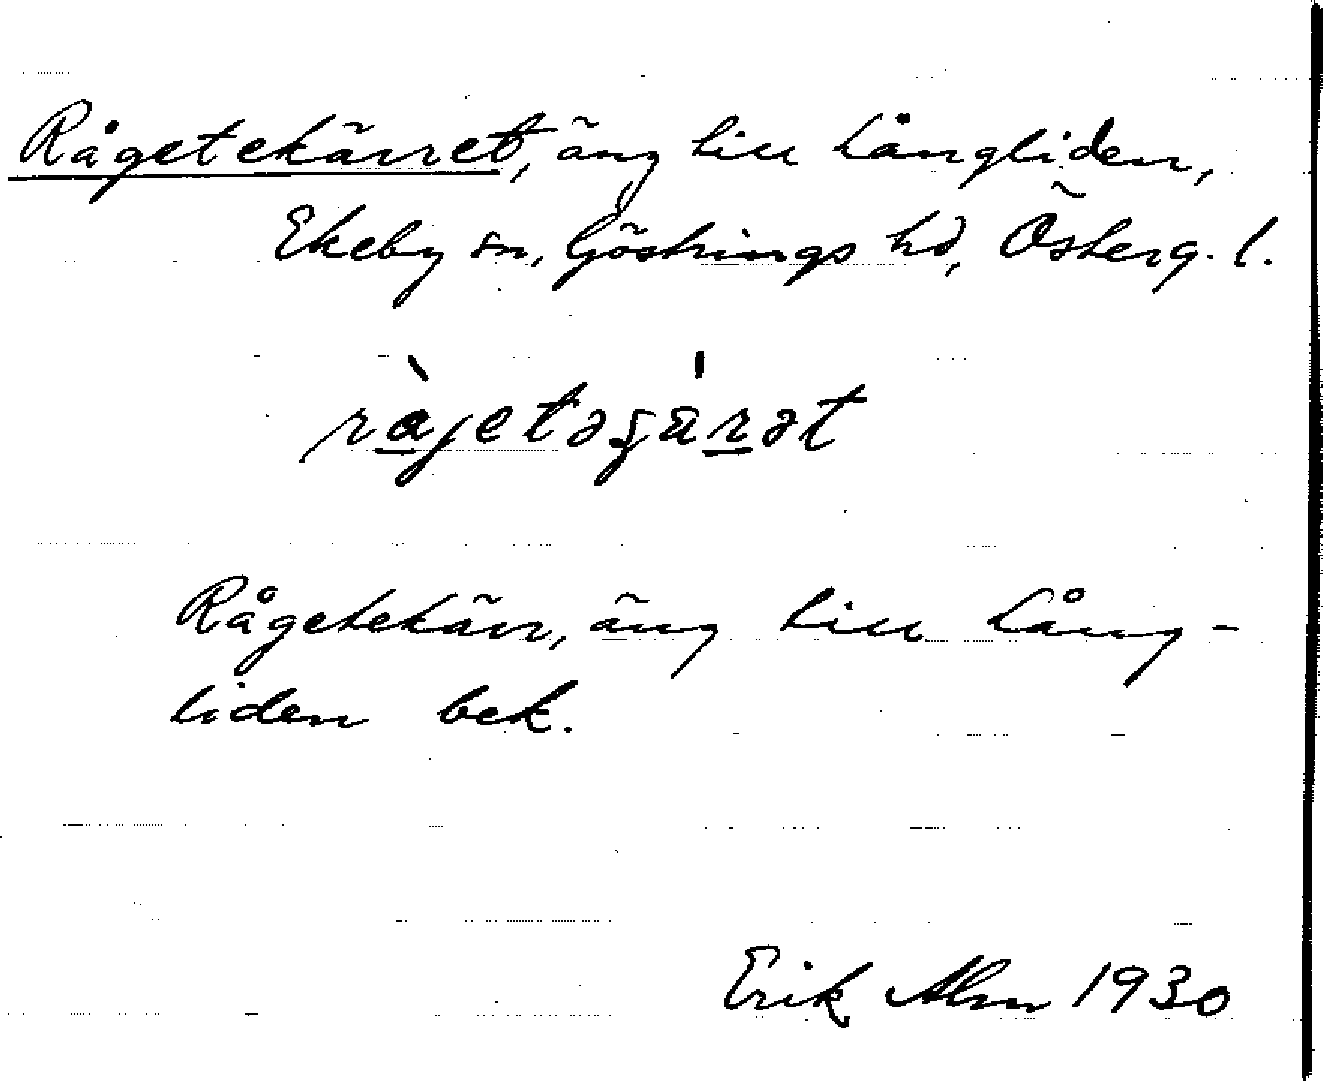 Rågetekärret, äng till Långliden,
Ekeby sn, Göstrings hd, Österg. l.
ràjetəʂä́rət
Rågetekärr, äng till Lång-
liden bek.
Erik Alm 1930